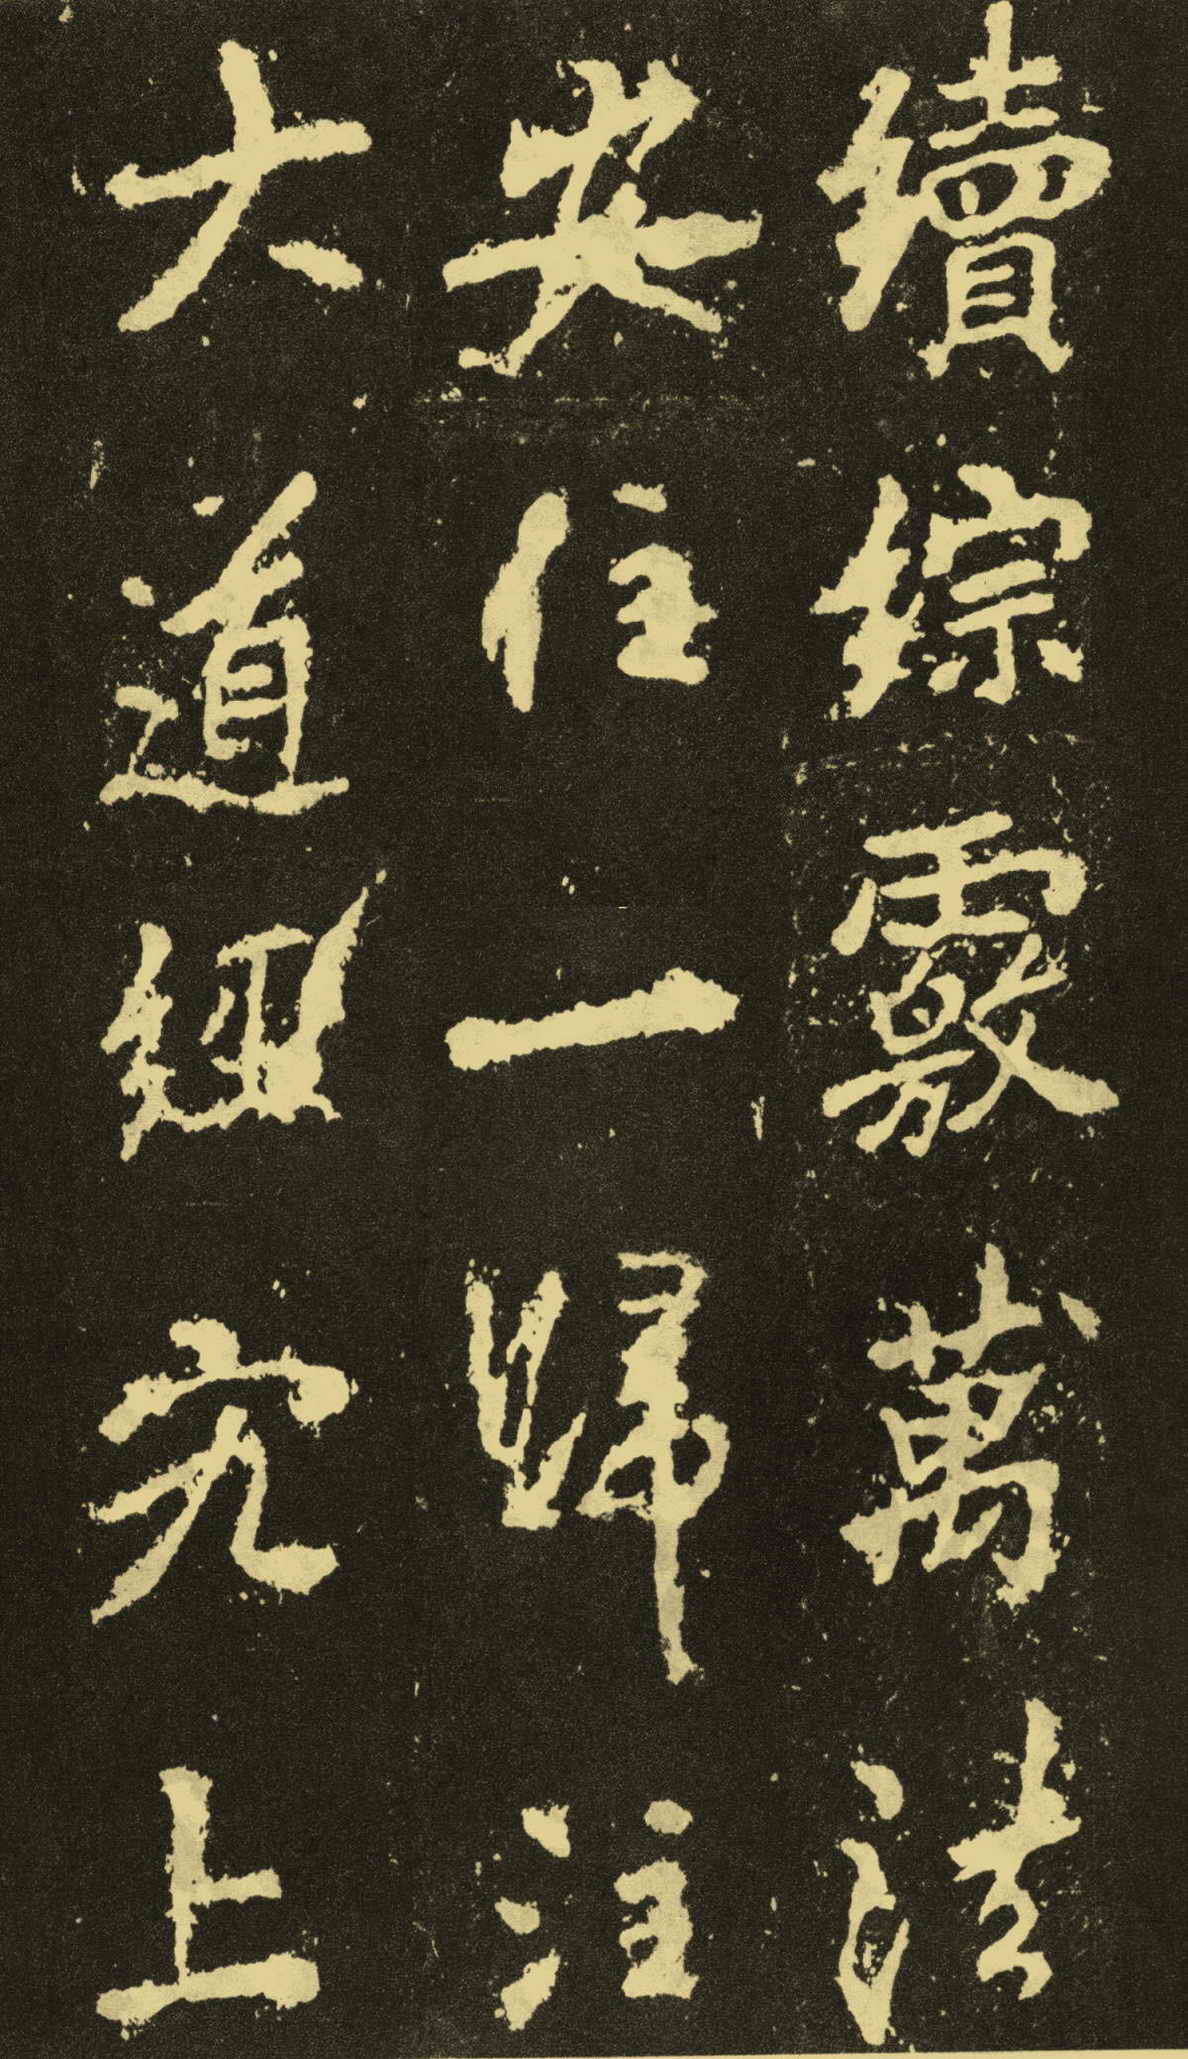 續綜覈萬法
安住一歸注
大道究上